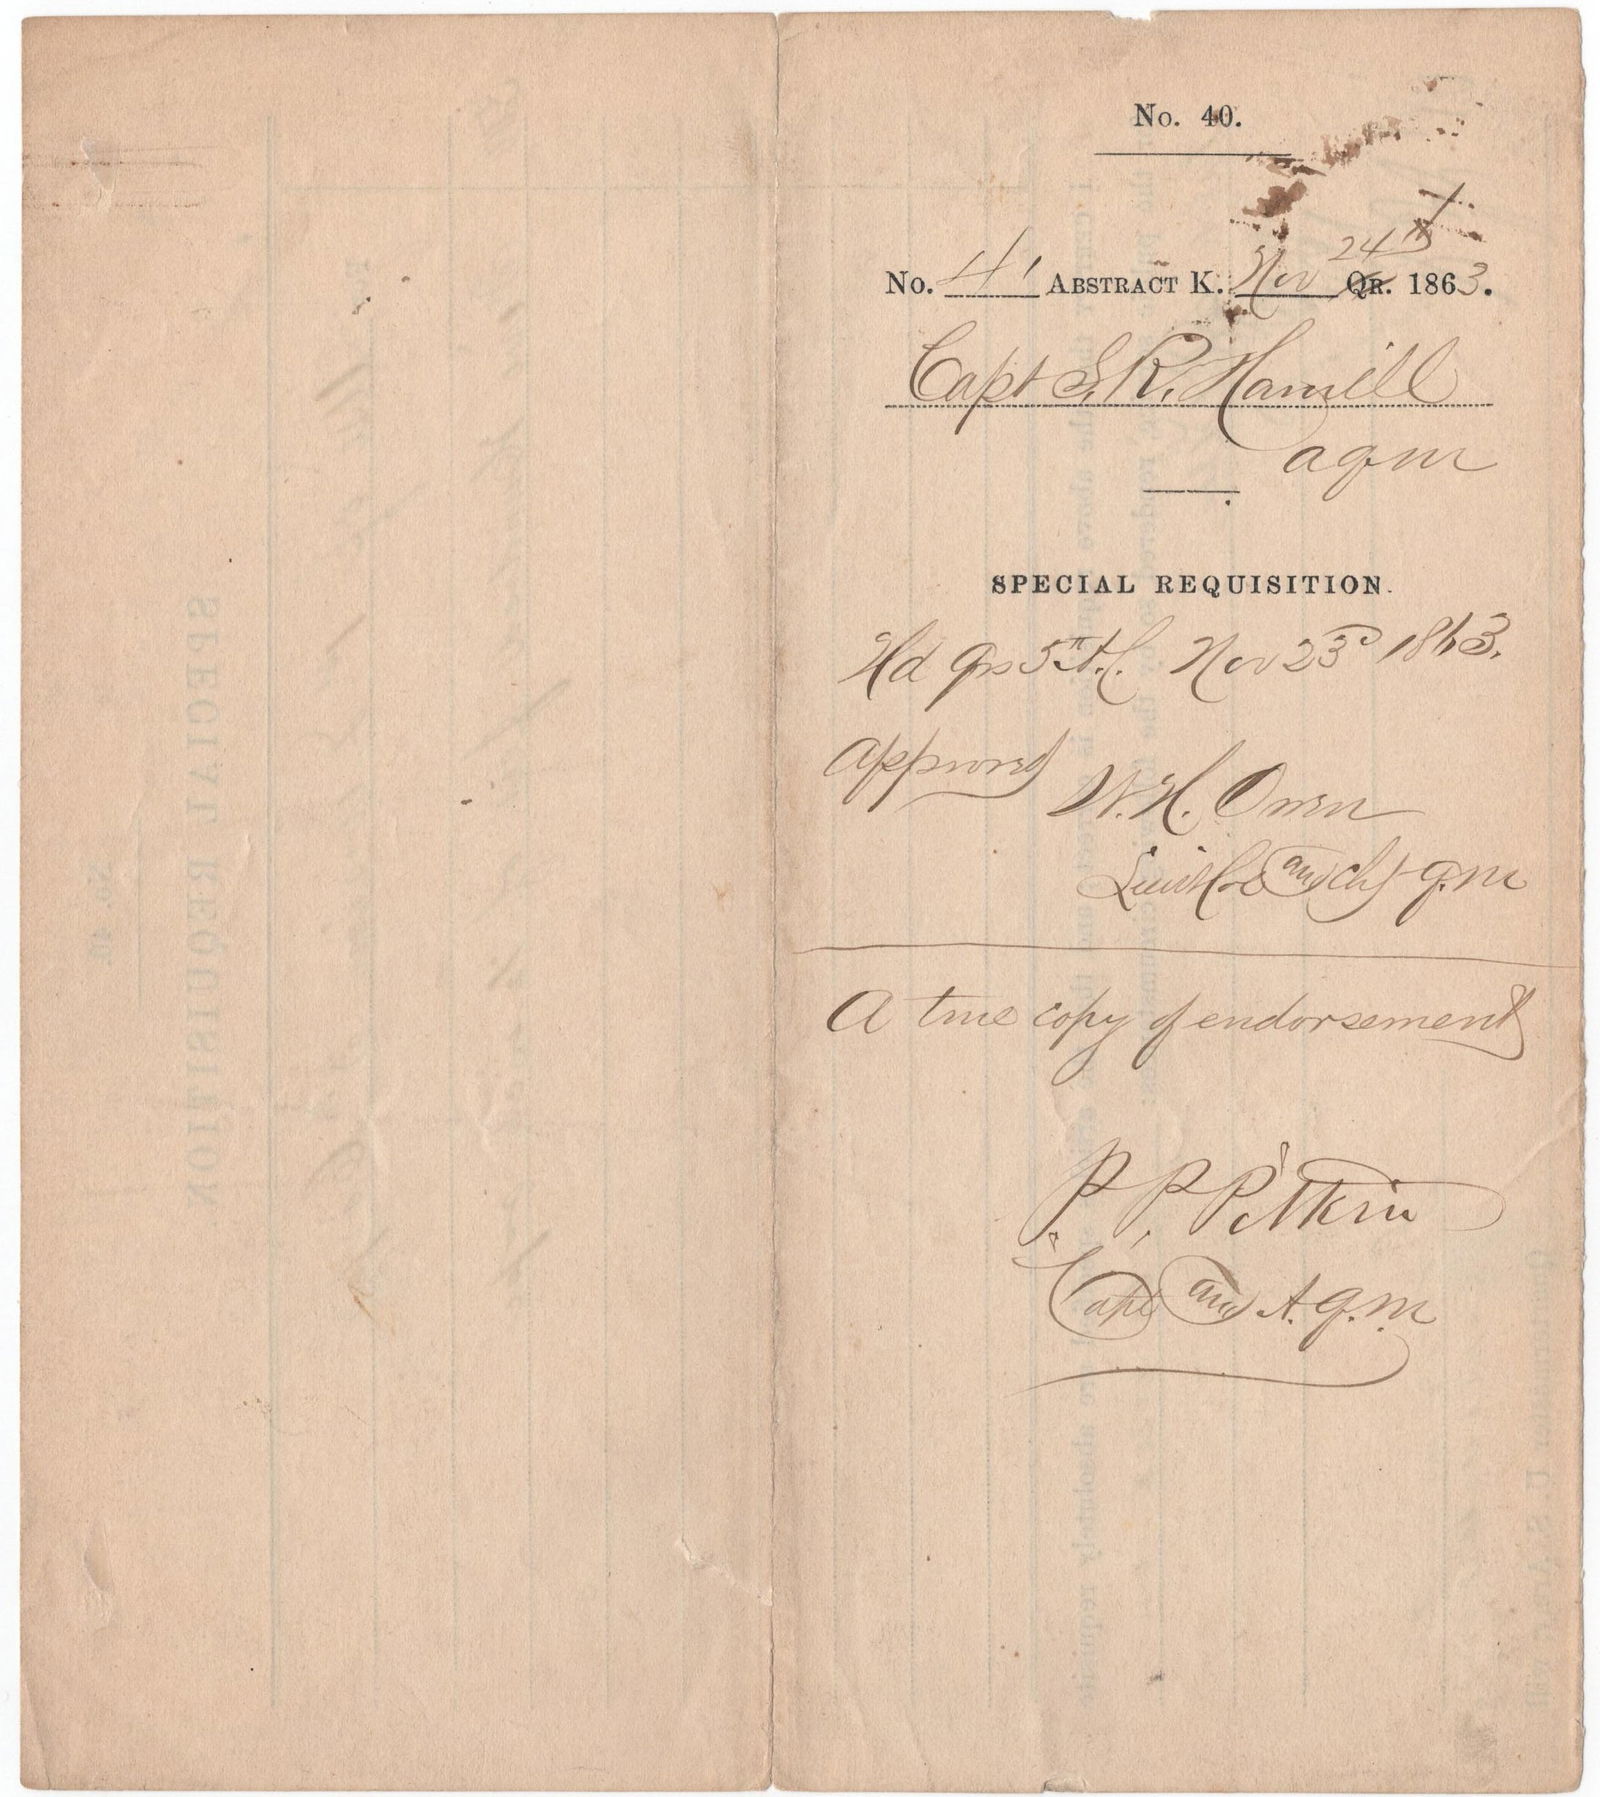 No. 40.
No. 4 Abstract K. Nov 24th Qr. 1863.
Capt S. R. Hamill
aqm
SPECIAL REQUISITION.
Hd Qrs 5th A.C. Nov 23d 1863.
Approved
W. H. Owen
Lieut Col and Chf q.m
A true copy of endorsement
P. P. Pitkin
Capt and A.q.m.